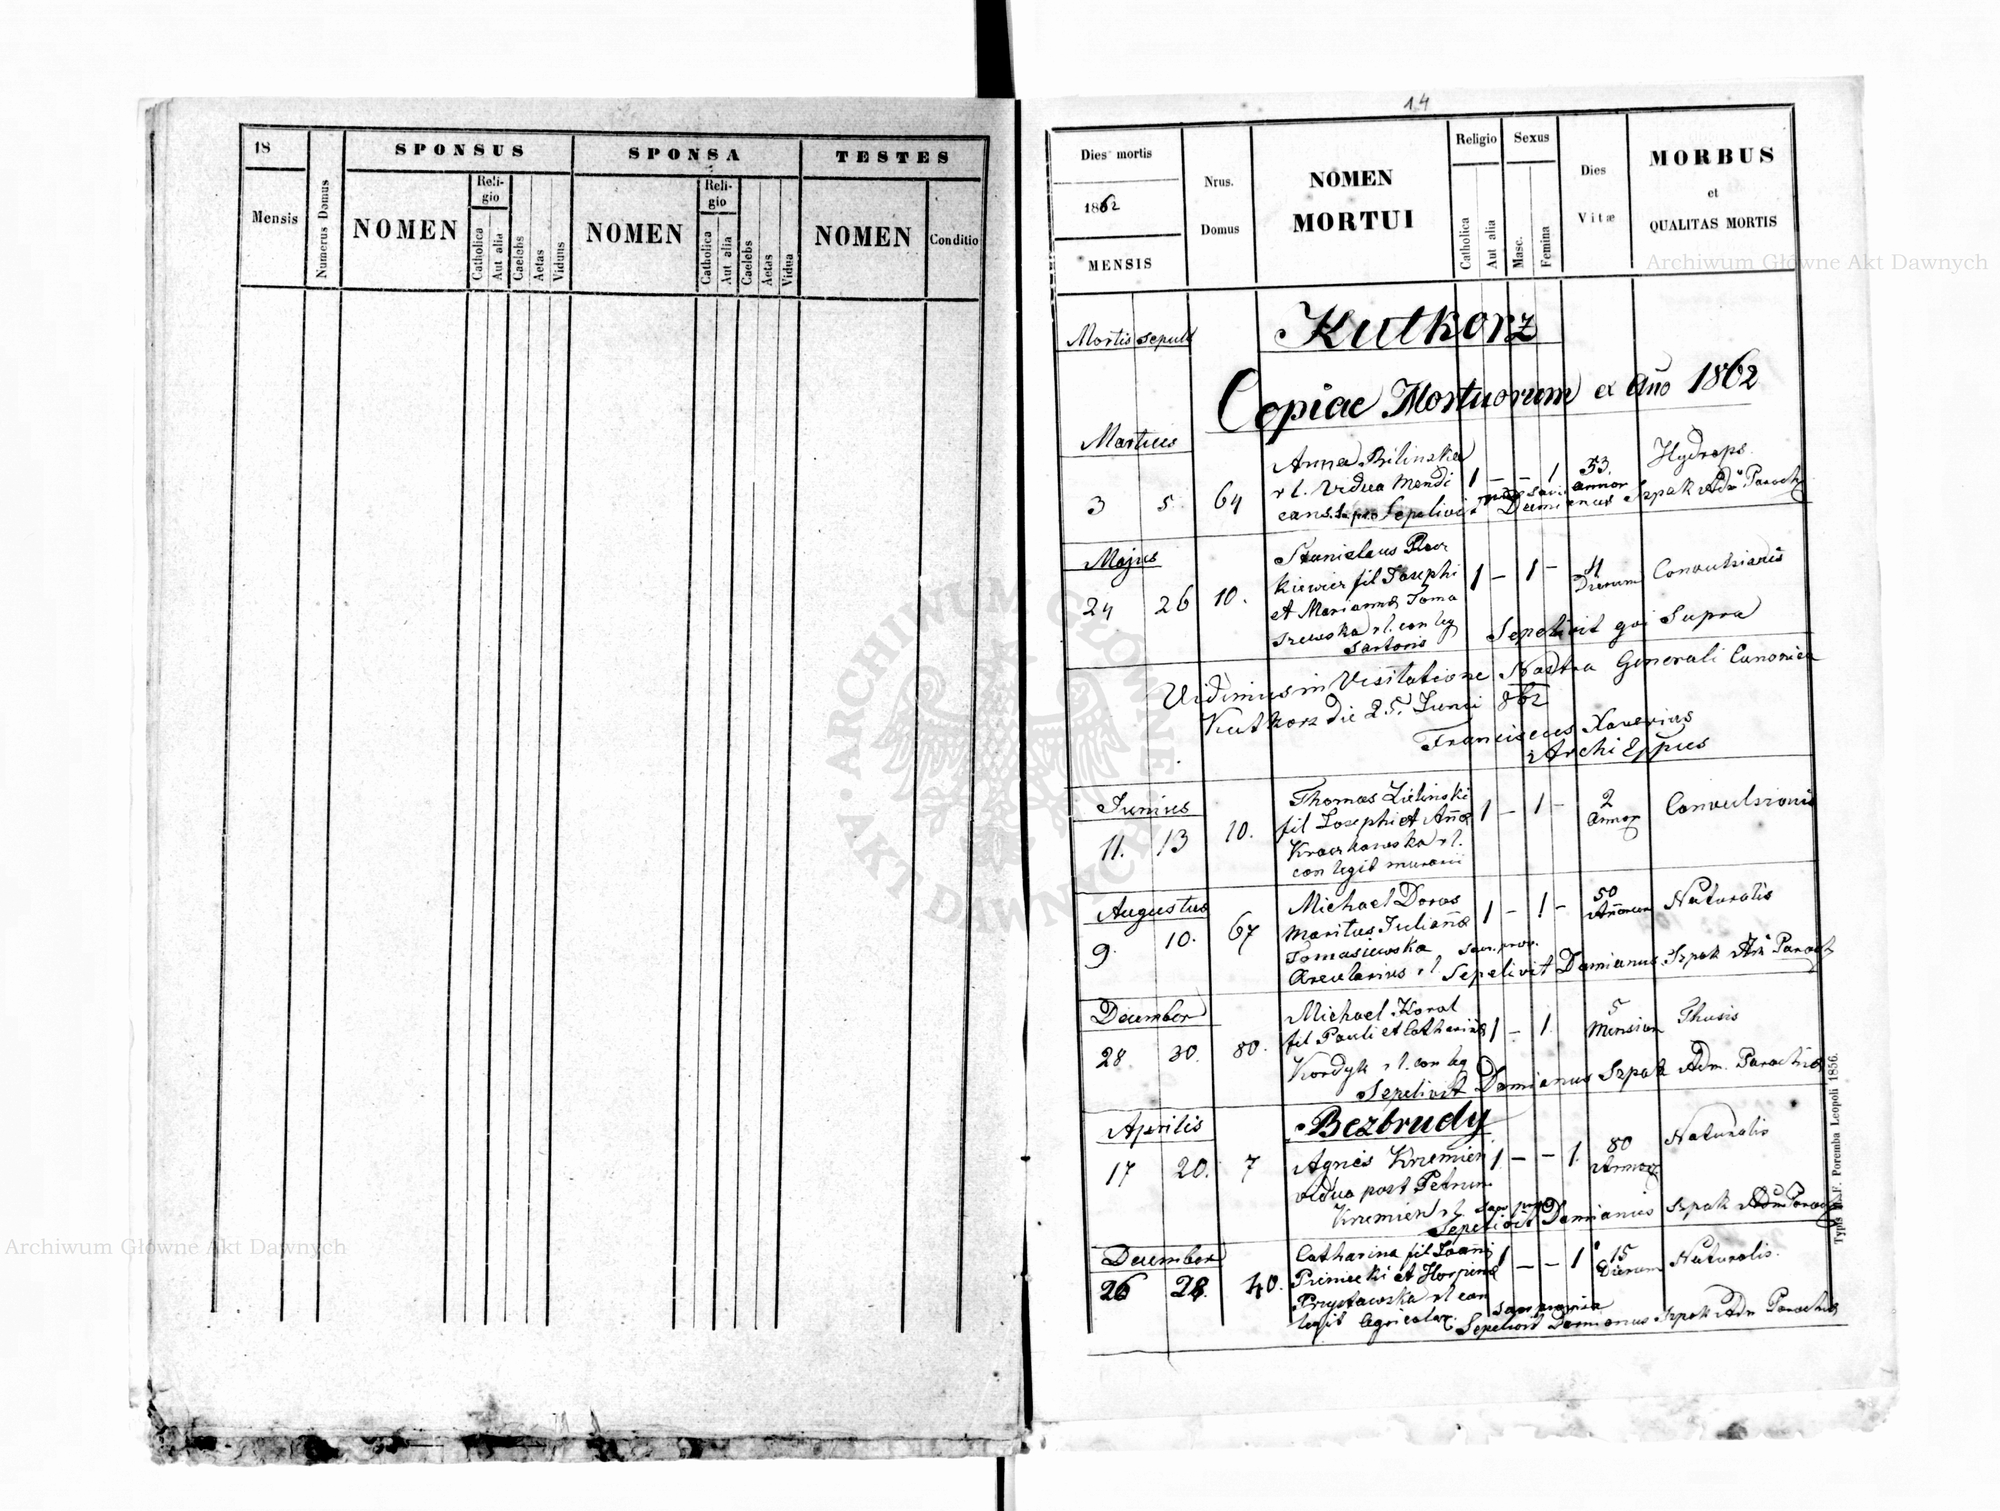 18
Mensis
Numerus Domus
SPONSUS
NOMEN
Reli-
gio
Catholica
Aut alia
Caelebs
Aetas
Viduus
SPONSA
NOMEN
Reli-
gio
Catholica
Aut alia
Caelebs
Aetas
Vidua
TESTES
NOMEN
Conditio
14
Dies mortis
1862
MENSIS
Nrus.
Domus
NOMEN
MORTUI
Religio
Catholica
Aut alia
Sexus
Masc.
Femina
Dies
Vitæ
MORBUS
et
QUALITAS MORTIS
Mortis sepult
Kutkorz
Copiae Mortuorum ex Año 1862
Martius
3 5 64
Anna Bilinska
r l. Vidua Mendi
cans
1 - - 1
53.
annor
Hydrops
Sepelivit Damianus Szpak Adm Paroch
Majus
24 26 10.
Stanislaus
kiewicz fil Josephi
et Marianna Toma
szewska r l. con leg
Sartoris
1 - 1 -
4
Dierum
Convulsionis
Sepelivit qui Supra
Vidimus in Visitatione Nostra Generali Canonica
Kutkorz die 25. Junii 862
Franciscus Xaverius
Archi Eppus
Junius
11. 13 10.
Thomas Zielinski
fil Josephi et Añæ
Kraczkowska r l.
con legit murarii
1 - 1 -
2
Annor
Convulsionis
Augustus
9. 10. 67
Michael Doros
maritus Julianæ
Tomasiewska sacr. prov.
Arcularius r l. Sepelivit Damianus Szpak Adm Paroch
1 - 1 -
50
Añorum
Naturalis
December
28 30. 80.
Michael Koral
fil Pauli et Catharinæ
Kordyk r l. con leg
1 - 1.
5
Mensium
Thusis
Sepelivit Damianus Szpak Adm. Parochiæ
Aprilis
Bezbrudy
17 20. 7
Agnes Krzemień
vidua post Petrum
Krzemień r l.
1. - - 1.
80
Annor
Naturalis
Sepelivit Damianus Szpak Adm Paroch
December
26 28. 40.
Catharina fil Joañis
Pieniecki et Horpina
Przystawska r l con
legit Agricolar.
1 - - 1
15
Dierum
Naturalis.
Sepelivit Damianus Szpak Adm Parochiæ
Typis H. F. Poremba Leopoli 1856.
ARCHIWUM GŁÓWNE
AKT DAWNYCH
Archiwum Główne Akt Dawnych
Archiwum Główne Akt Dawnych